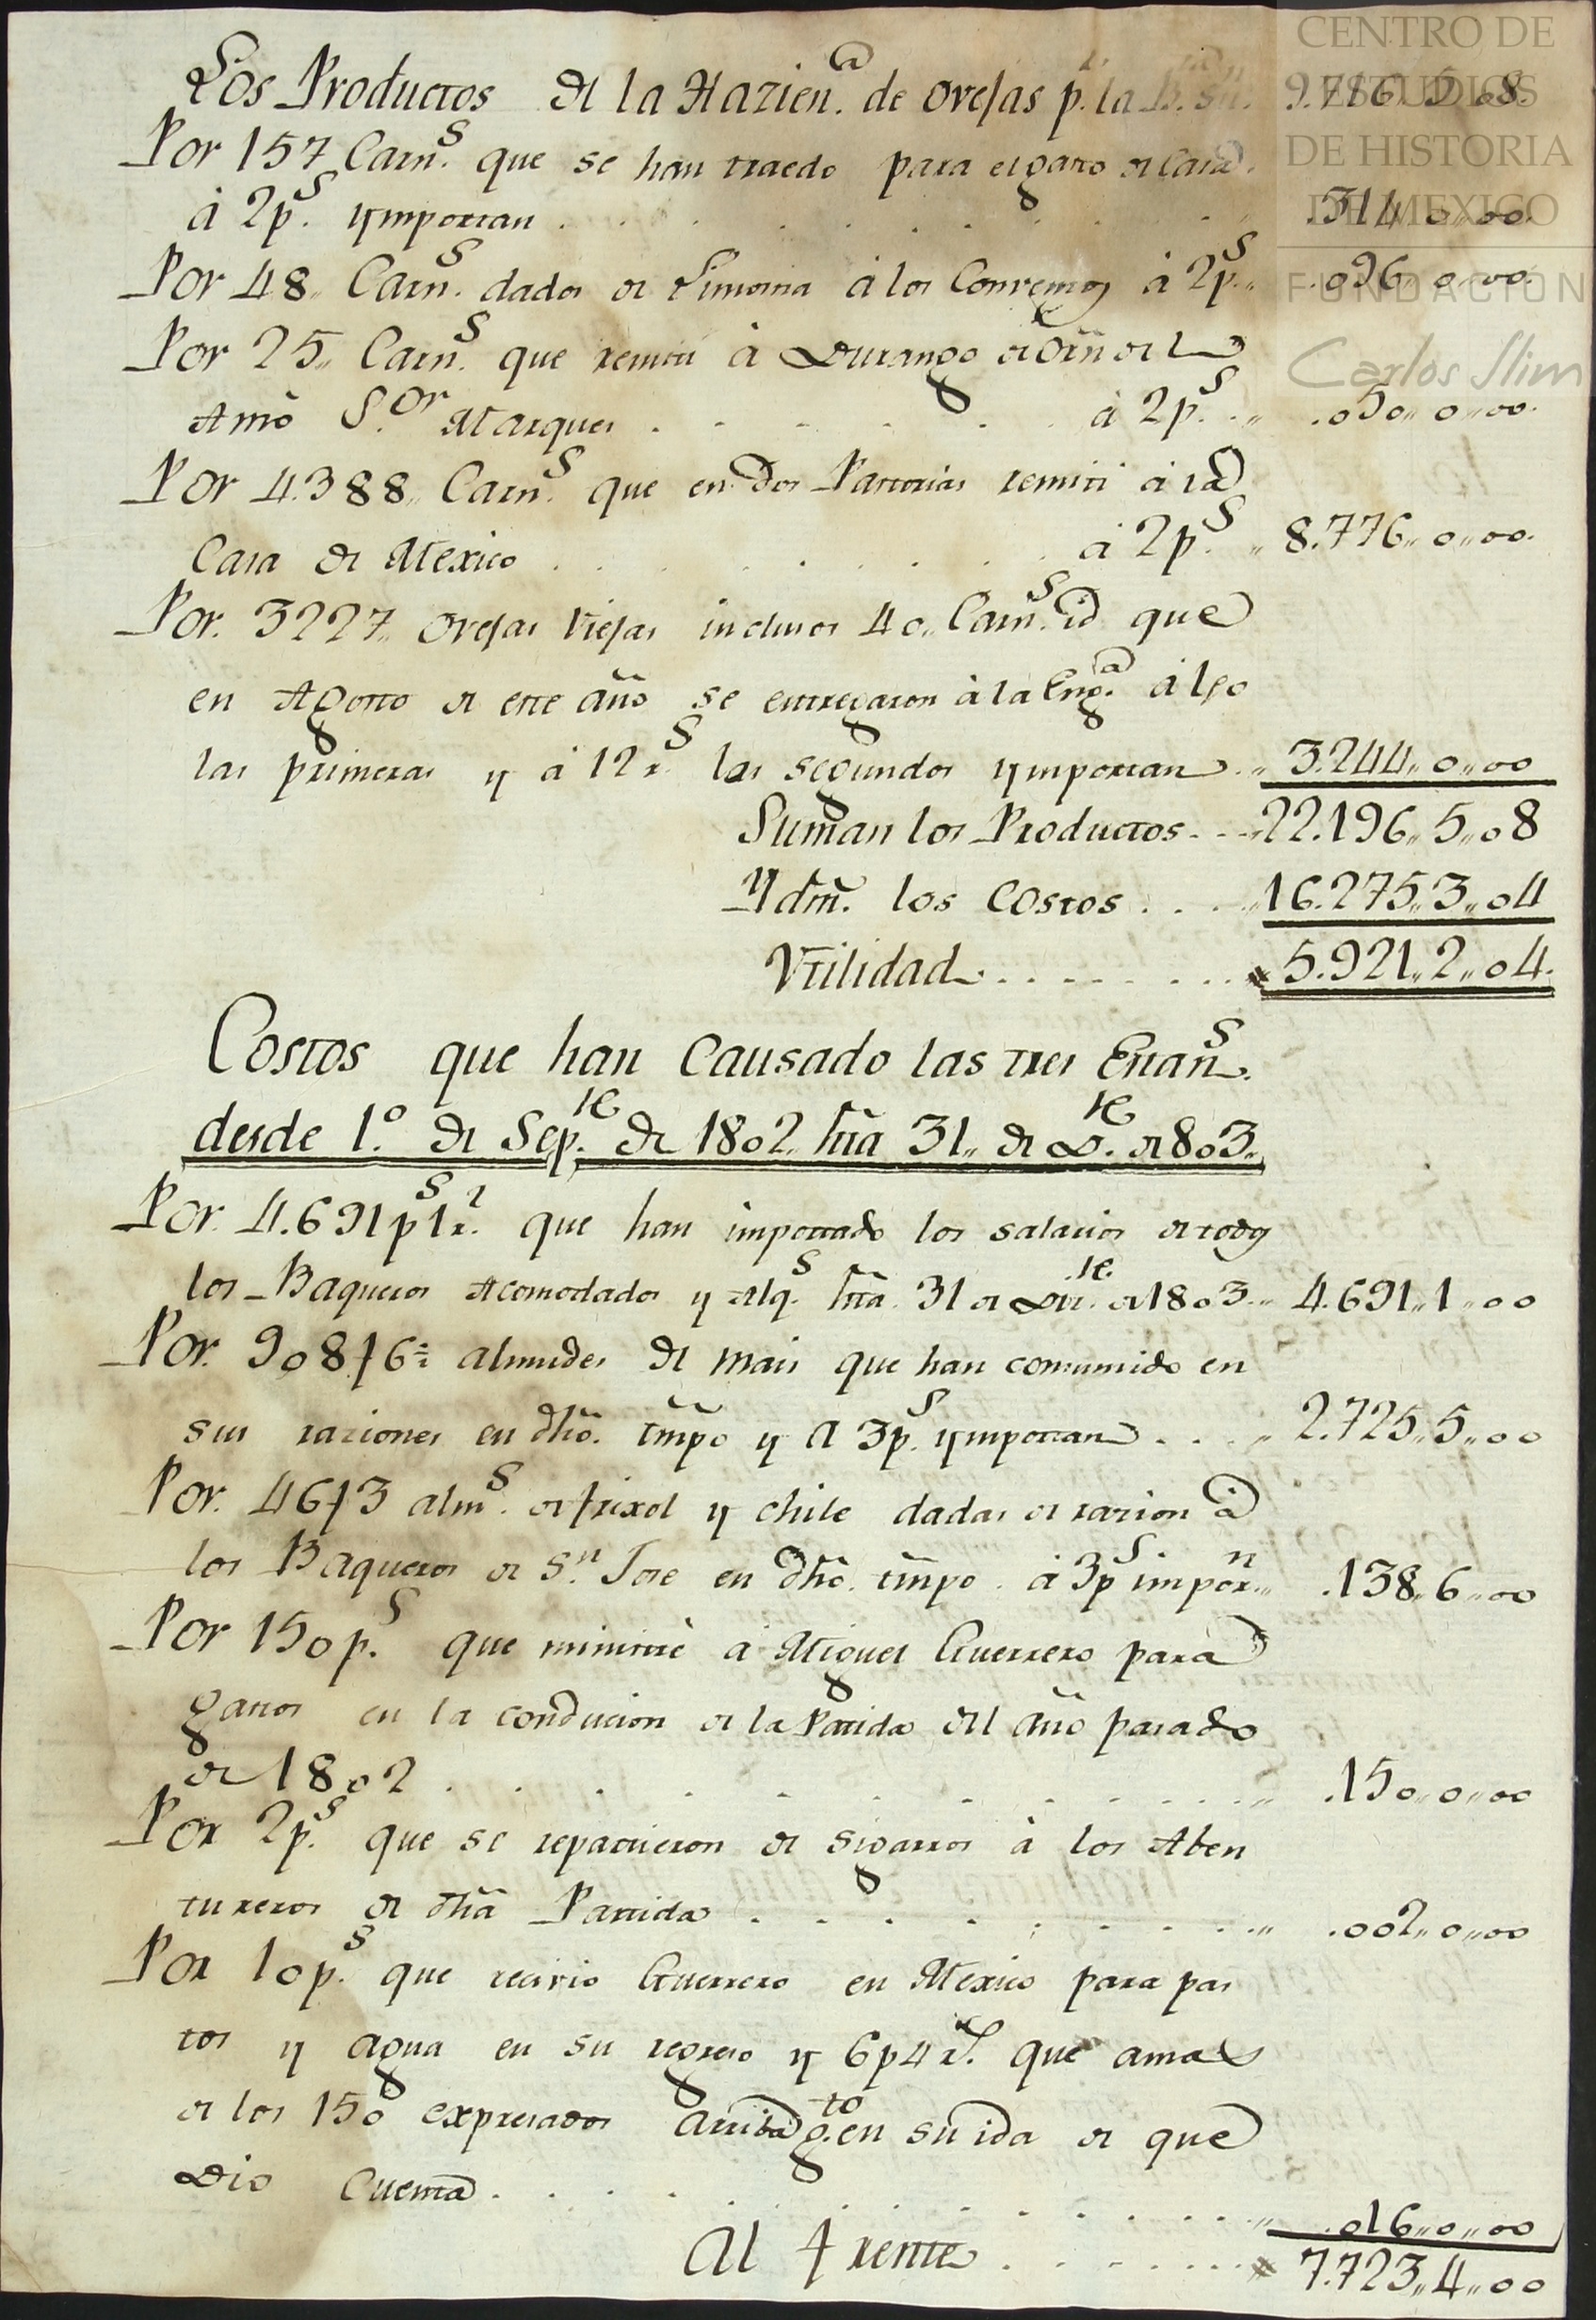 Los Productos de la Hazien.a de ovejas p.r la 9.716,,5,,08.
Por 157 Carn.s que se han traedo para el gasto de Casa
à 2p.s ymportan . . . . . . . . .314,,0,,00.
Por 48,, Carn.s dados de Limosna à los Conventos à 2p.s ,, .096,,0,,00.
Por 25,, Carn.s que remiti à Durango de Orñ del
Amo S.or Marques . . . . . . à 2p.s . ,, .050,,0,,00.
Por 4.388,, Carn.s que en dos Partorias remiti à la
Casa de Mexico . . . . . . . à 2p.s ,, 8.776,,0,,00.
Por. 3227,, ovejas viejas inclusos 40,, Carn.s id que
en Agosto de este año se entregaron à la Eng.a à 1po
las primeras y à 12 r.s los segundos ymportan . ,, 3.244,,0,,00
Suman los Productos . . . 22.196,,5,,08
Ydm̃. los Costos . . . . 16.275,,3,,04
Vtilidad . . . . . . . . 5.921,,2,,04.
Costos que han Causado las tres Estan.s
desde 1.o de Sep.re de 1802,, hta 31,, de D.re de 803,,
Por. 4.691p.s 1r.l que han importado los salarios de todos
los Baqueros Acomodados y Alq.s hta 31 de Dic.re de 1803 ,, 4.691,,1,,00
Por. 908f6 almudes de mais que han consumido en
sus raziones en dho. tm̃po y a 3p.s ymportan . . . ,, 2.725,,5,,00
Por. 46f3 alm.s de frixol y chile dadas de razion à
los Baqueros de S.n Jose en dho. tm̃po. à 3p.s impor.n ,, .138,,6,,00
Por 150p.s que ministrè à Miguel Guerrero para
gastos en la conducion de la Partida del año pasado
de 1802 . . . . . . . . . . ,, .150,,0,,00
Por 2p.s que se repartieron de sigarros à los Aben
tureros de dha Partida . . . . . . . . ,, .002,,0,,00
Por 10p.s que recivio Guerrero en Mexico para pas
tos y agua en su regreso y 6p4r.s que amas
de los 150 expresados arriba g.to en su ida de que
Dio Cuenta . . . . . . . . . . ,, .016,,0,,00
Al frente . . . . . . . 7.723,,4,,00
CENTRO DE
ESTUDIOS
DE HISTORIA
DE MEXICO
FUNDACIÓN
Carlos Slim